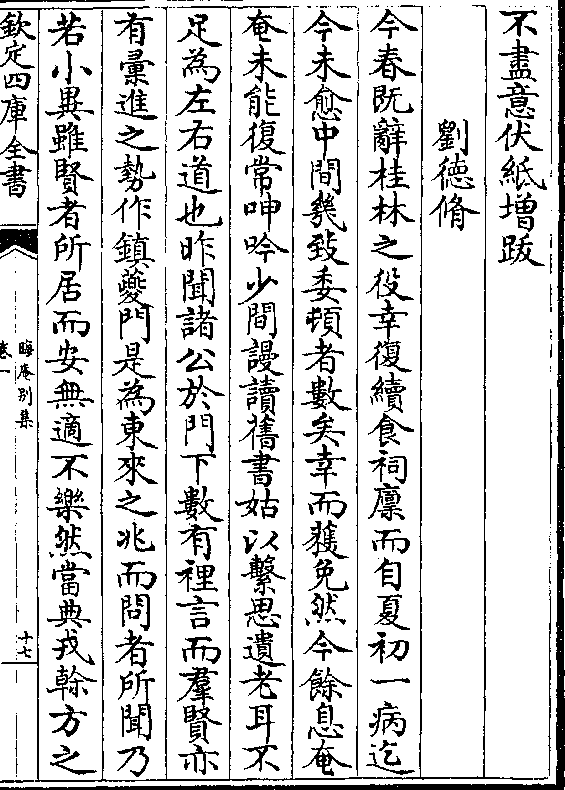 不盡意伏紙增跋
劉德脩
今春既辭桂林之役幸復續食祠廪而自夏初一病迄
今未愈中間幾致委頓者數矣幸而獲免然今餘息奄
奄未能復常呻吟少間謾讀舊書姑以繫思遺老耳不
足為左右道也昨聞諸公於門下數有裡言而羣賢亦
有彚進之勢作鎮夔門是為東來之兆而問者所聞乃
若小異雖賢者所居而安無適不樂然當典戎幹方之
欽定四庫全書
晦庵別集
卷一
十七